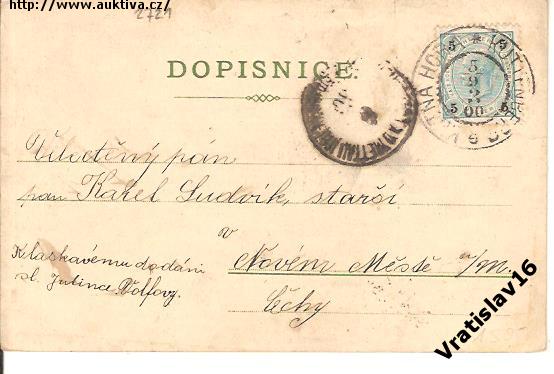 http://www.auktiva.cz/
2721
DOPISNICE.
5 5
5 5
KUTNÁ HORA * KUTTENBERG
5
00
Velectěný pán
pan Karel Ludvík, starší
v
Novém Městě n/m.
Čechy
K laskavému dodání
sl. Julince Wolfovy.
Vratislav16